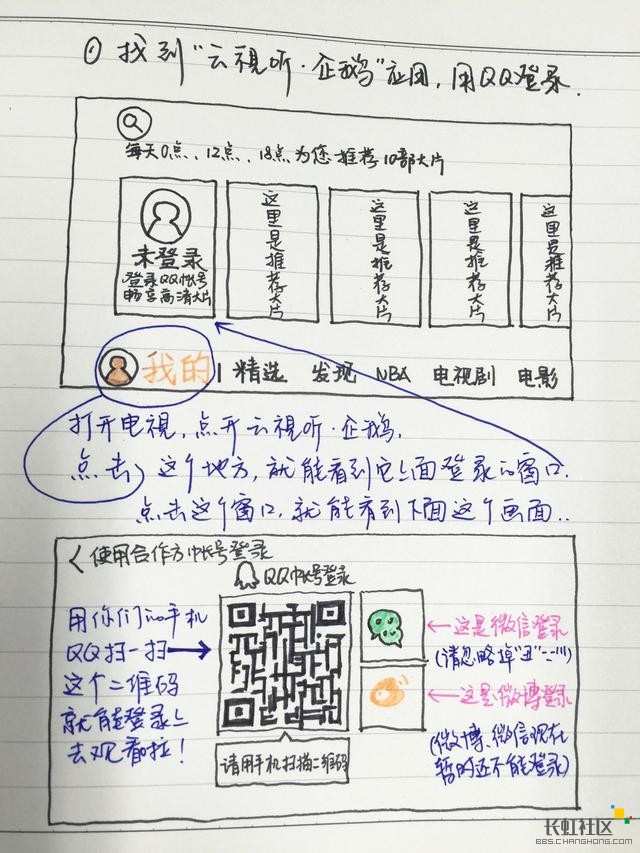 ① 找到“云視听·企鹅”应用,用QQ登录.
每天0点、12点、18点为您推荐10部大片
未登录
登录QQ帐号
畅享高清大片
这里是推荐大片
这里是推荐大片
这里是推荐大片
这里是推荐大片
我的 | 精选 发现 NBA 电视剧 电影
打开电視,点开云視听·企鹅,
点击这个地方,就能看到它上面登录的窗口.
点击这个窗口,就能看到下面这个画面..
く使用合作方帐号登录
QQ帐号登录
用你们的手机
QQ扫一扫
这个二维码
就能登录上
去观看啦!
请用手机扫描二维码
←这是微信登录
(请忽略掉“丑”
←这是微博登录
(微博、微信现在
暂时还不能登录)
长虹社区
BBS.CHANGHONG.COM